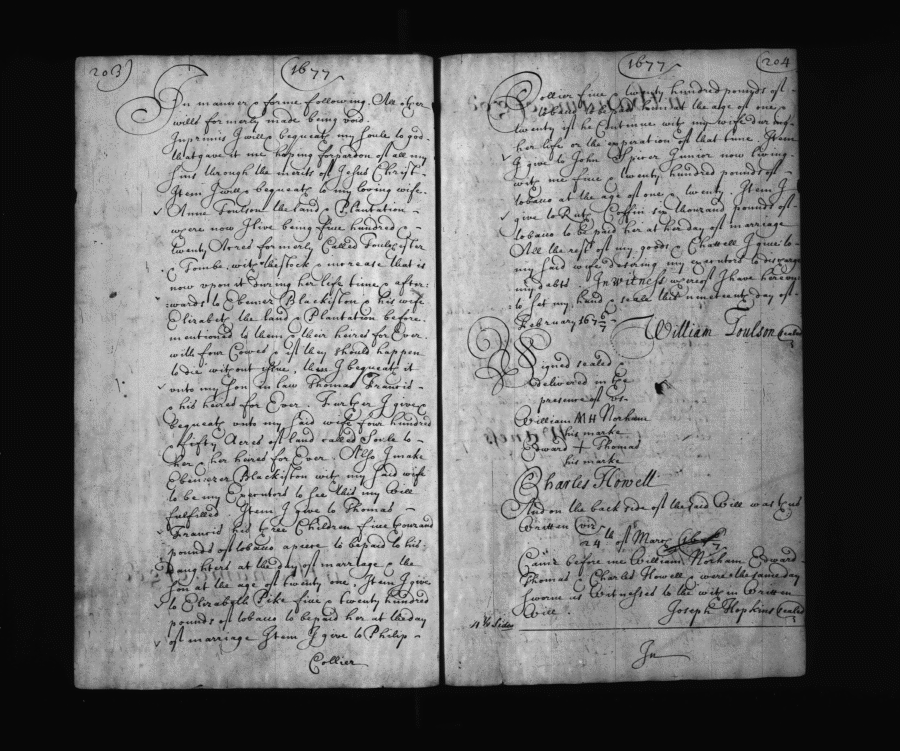 203
1677
In manner & forme following. All other
wills formerly made being void.
Inprimis I will & bequeath my Soule to god
that gave it me hoping for pardon of all my
sins through the merits of Jesus Christ
Item I will & bequeath to my loving wife
Anne Toulson the land & Plantation
where now I live being five hundred &
twenty Acres formerly Called
& Tombe with the stock & increase that is
now upon it during her life time & after-
wards to Ebenezer Blackiston & his wife
Elizabeth the land & Plantation before
mentioned to them their heires for Ever
with four Cowes & if they should happen
to die without issue, then I bequeath it
unto my son in law Thomas Francis
& his heires for Ever. Further I give &
bequeath unto my said wife four hundred
& fifty Acres of land called Soule to
her & her heires for Ever. Also I make
Ebenezer Blackiston with my said wife
to be my Executors to see this my Will
fulfilled. Item I give to Thomas
Francis his three Children five thousand
pounds of tobacco apiece to be paid to his
Daughters at the day of marriage & the
son at the age of twenty one. Item I give
to Elizabeth Pike five & twenty hundred
pounds of tobacco to be paid her at the day
of marriage Item I give to Philip
Collier
1677
204
Collier five & twenty hundred pounds of
tobacco to be paid him at the age of one &
twenty if he Continue with my wife during
her life or the expiration of that time. Item
I give to John Spicer Junior now living
with me five & twenty hundred pounds of
tobacco at the age of one & twenty. Item I
give to Ruth Coffin six thousand pounds of
tobacco to be paid her at her day of marriage
All the rest of my goods & Chattell I give to
my said wife desiring my executors to discharge
my debts. In witness whereof I have hereun
to set my hand & seale this nineteenth day of
February 167 6/7
William Toulson sealed
Signed sealed &
Delivered in the
presence of us.
William MH Norham
his marke
Edward + Thomas
his marke
Charles Howell
And on the back side of the said Will was thus
Written (viz)
24th of March
Came before me William Norham Edward
Thomas & Charles Howell & were the same day
sworne as Witnesses to the within Written
Will.
Joseph Hopkins sealed
11 1/2 Sides
In